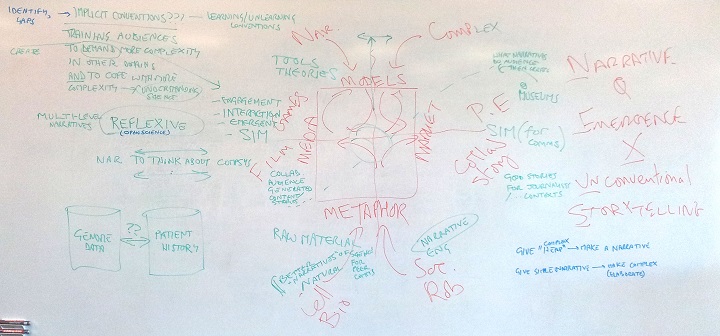 IDENTIFY GAPS
IMPLICIT CONVENTIONS >>>
LEARNING/UNLEARNING
CONVENTIONS
TRAINING AUDIENCES
TO DEMAND MORE COMPLEXITY
CREATE
IN OTHER DOMAINS
AND TO COPE WITH MORE
COMPLEXITY
MULTI-LEVEL
NARRATIVES
REFLEXIVE
(OPEN SCIENCE)
NAR TO THINK ABOUT COMSYS
GENOME
DATA
??
PATIENT
HISTORY
NAR.
COMPLEX
TOOLS
THEORIES
MODELS
- ENGAGEMENT
- INTERACTION
- EMERGENT
- SIM
GAMES
MEDIA
FILM
COLLAB
AUDIENCE
GENERATED
CONTENT/
METAPHOR
RAW MATERIAL
BETTER
NARRATIVES OF
NATURAL
FOR
PEER
Cell
Bio
NARRATIVE
ENG
Soc.
Rob
P.E
SIM (for
Comms)
Collab
Story
MUSEUMS
GOOD STORIES
FOR JOURNALIST
CONTEXTS
NARRATIVE
EMERGENCE
X
UNCONVENTIONAL
STORYTELLING
GIVE "COMPLEX → MAKE A NARRATIVE
GIVE SIMPLE NARRATIVE → MAKE COMPLEX
(ELABORATE)